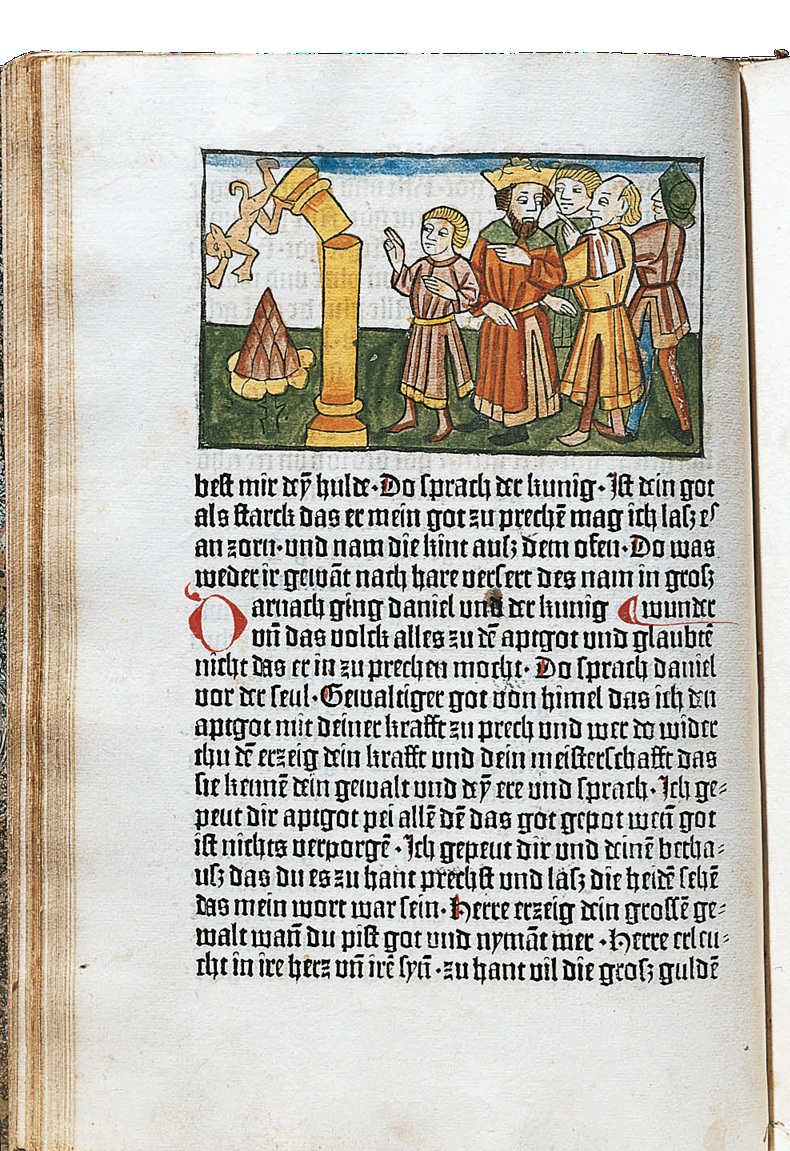 best mir deȳ hulde · Do sprach der kunig · Ist dein got
als starck das er mein got zu prechē mag ich lasʒ es
an zorn · vnd nam die kint ausʒ dem ofen · Do was
weder ir gewāt nach hare versert des nam in grosʒ
Darnach ging daniel vnd der kunig ⸿ wunder
vn̄ das volck alles zu dē aptgot vnd glaubtē
nicht das er in zu prechen mocht · Do sprach daniel
vor der seul · Gewaltiger got von himel das ich den
aptgot mit deiner krafft zu prech vnd wer do wider
thu dē erzeig dein krafft vnd dein meisterschafft das
sie kennē dein gewalt vnd deȳ ere vnd sprach · Ich ge⸗
peut dir aptgot pei allē dē das got gepot wen̄ got
ist nichts verporgē · Ich gepeut dir vnd deinē becha⸗
usʒ das du es zu hant prechst vnd lasʒ die heidē sehē
das mein wort war sein · Herre erzeig dein grossē ge⸗
walt wan̄ du pist got vnd nymāt mer · Herre erleu⸗
cht in ire herz vn̄ irē syn̄ · zu hant vil die grosʒ guldē